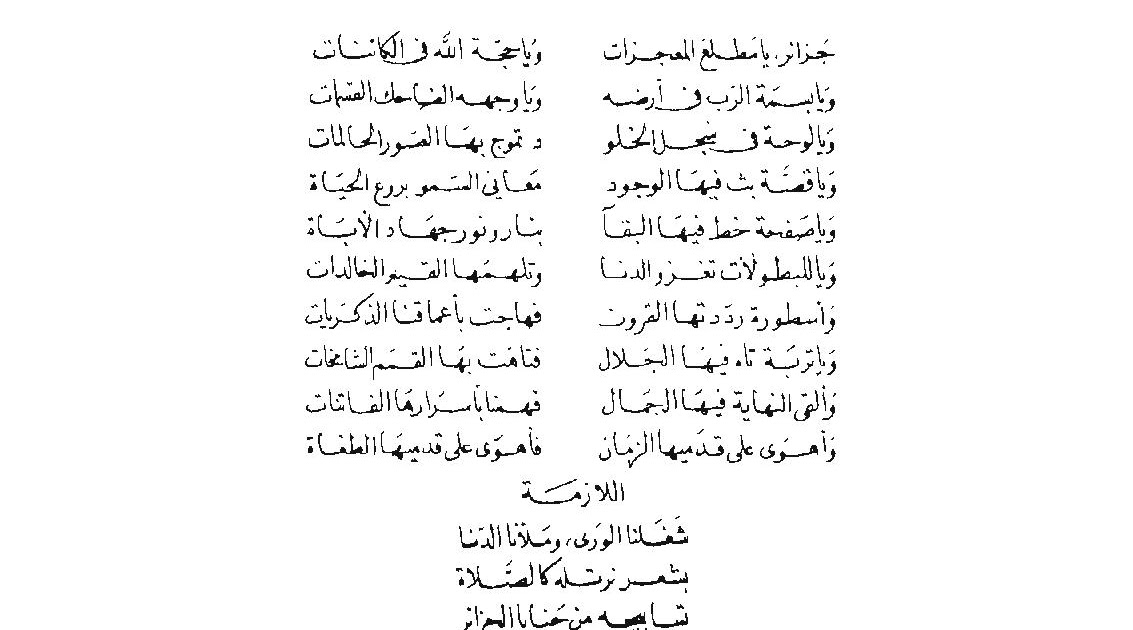 جَزائر، يا مَطلعَ المعجزات    وَيا حجّة اللّه في الكائنات
وَيا بسمَة الرَب في أرضه    وَيا وجهه الضاحك القسمات
وَيا لوحة في سجل الخلو    د تموج بهَا الصّور الحالمات
وَيا قصَّة بث فيهَا الوجود    مَعاني السّمو بروع الحيَاة
وَيا صَفحة خط فيهَا البقآ    بنار ونور جهَاد الأبَاة
وَيا للبطولات تغزو الدنا    وتلهمهَا القيم الخالدات
وَأسطورة ردّدتهَا القرون    فهاجت بأعماقنا الذكرَيات
وَيا تربَة تاه فيهَا الجَلال    فتاهَت بهَا القمَم الشامخات
وَألقى النهاية فيهَا الجمَال    فهمنا بأسرَارهَا الفاتنات
وَأهوَى على قدَميها الزمَان    فأهوَى على قدميهَا الطغاة
اللازمَة
شَغَلنا الورَى، ومَلأنا الدّنا
بشعر نرتله كالصَّلاة
تسابيحه من حَنايا الجزائر